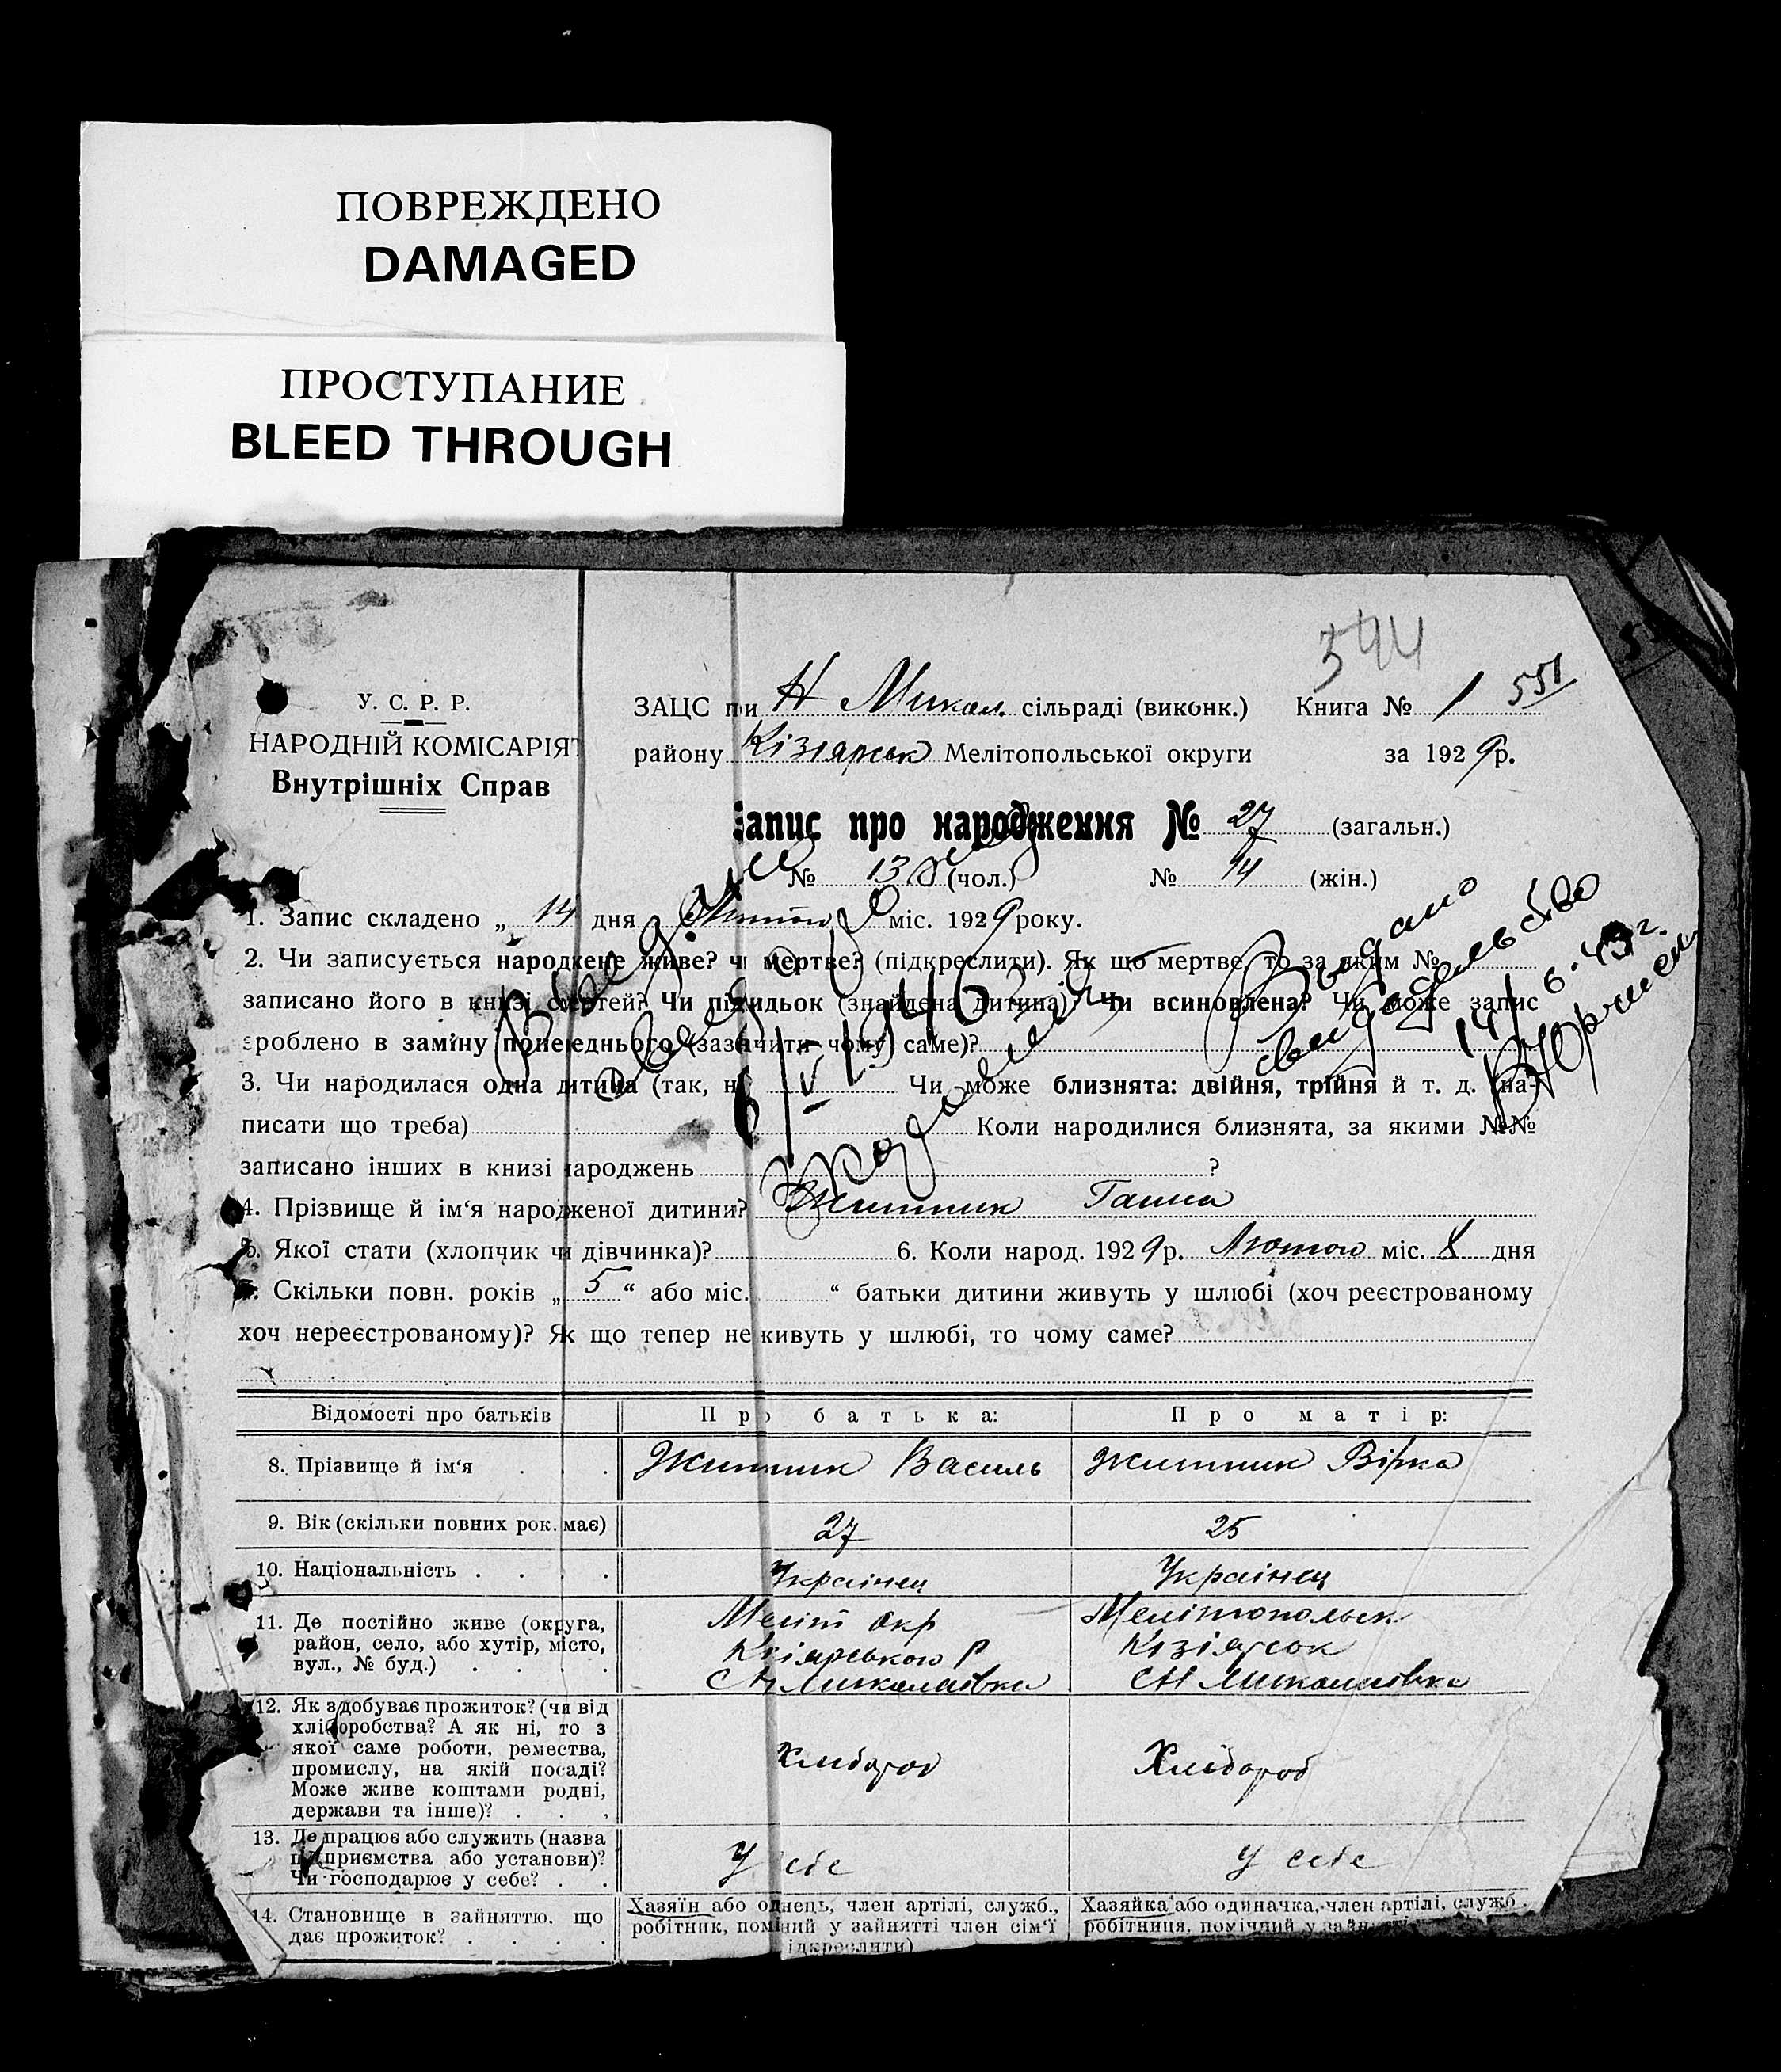 ПОВРЕЖДЕНО
DAMAGED
ПРОСТУПАНИЕ
BLEED THROUGH
544
У. С. Р. Р.
НАРОДНІЙ КОМІСАРІЯТ
Внутрішніх Справ
ЗАЦС при Н Микол. сільраді (виконк.) Книга № 1 551
району Кізіярськ Мелітопольської округи за 1929р.
Запис про народження № 27 (загальн.)
№ 13 (чол.) № 14 (жін.)
1. Запис складено „ 14 дня міс. 1929 року.
2. Чи записується народжене живе? чи мертве? (підкреслити). Як що мертве, то за яким №
записано його в книзі смертей? Чи підкидьок (знайдена дитина)? Чи всиновлена? Чи може запис
зроблено в заміну попереднього (зазначити чому саме)?
3. Чи народилася одна дитина (так, ні) Чи може близнята: двійня, трійня й т. д. (на-
писати що треба) Коли народилися близнята, за якими №№
записано інших в книзі народжень ?
4. Прізвище й ім'я народженої дитини? Житник Ганна
5. Якої стати (хлопчик чи дівчинка)? 6. Коли народ. 1929р. Лютого міс. 8 дня
7. Скільки повн. років „ 5 “ або міс. “ батьки дитини живуть у шлюбі (хоч реєстрованому
хоч нереєстрованому)? Як що тепер не живуть у шлюбі, то чому саме?
Выдано
свидетельство
14/ 6-43 г.
6/V 1946
Відомості про батьків Про батька: Про матір:
8. Прізвище й ім'я . . . Житник Василь Житник Вірка
9. Вік (скільки повних рок. має) 27 25
10. Національність . . . . Українец Українец
11. Де постійно живе (округа,
район, село, або хутір, місто,
вул., № буд.) . . . .
Меліт окр
Кізіярського Р
С Н Миколаївка
Мелітопольск
Кізіярськ
С Н Миколаївка
12. Як здобуває прожиток? (чи від
хліборобства? А як ні, то з
якої саме роботи, ремества,
промислу, на якій посаді?
Може живе коштами родні,
держави та інше)? . . .
Хлібороб Хлібороб
13. Де працює або служить (назва
підприємства або установи)?
Чи господарює у себе? . .
У себе У себе
14. Становище в зайняттю, що
дає прожиток? . . . .
Хазяїн або одинець, член артілі, служб.,
робітник, помічний у зайнятті член сім'ї
підкреслити)
Хазяйка або одиначка, член артілі, служб.
робітниця, помічний у зайнятті